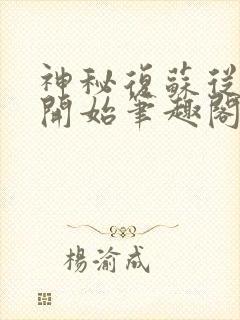 神秘復蘇從
開始筆趣閣
楊渝成